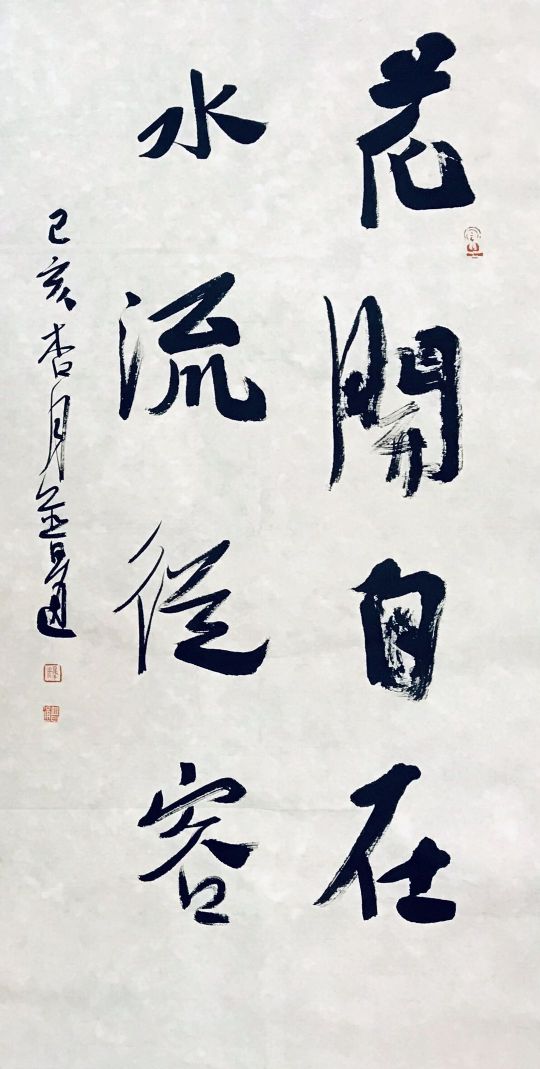 花開自在
水流從容
己亥杏月